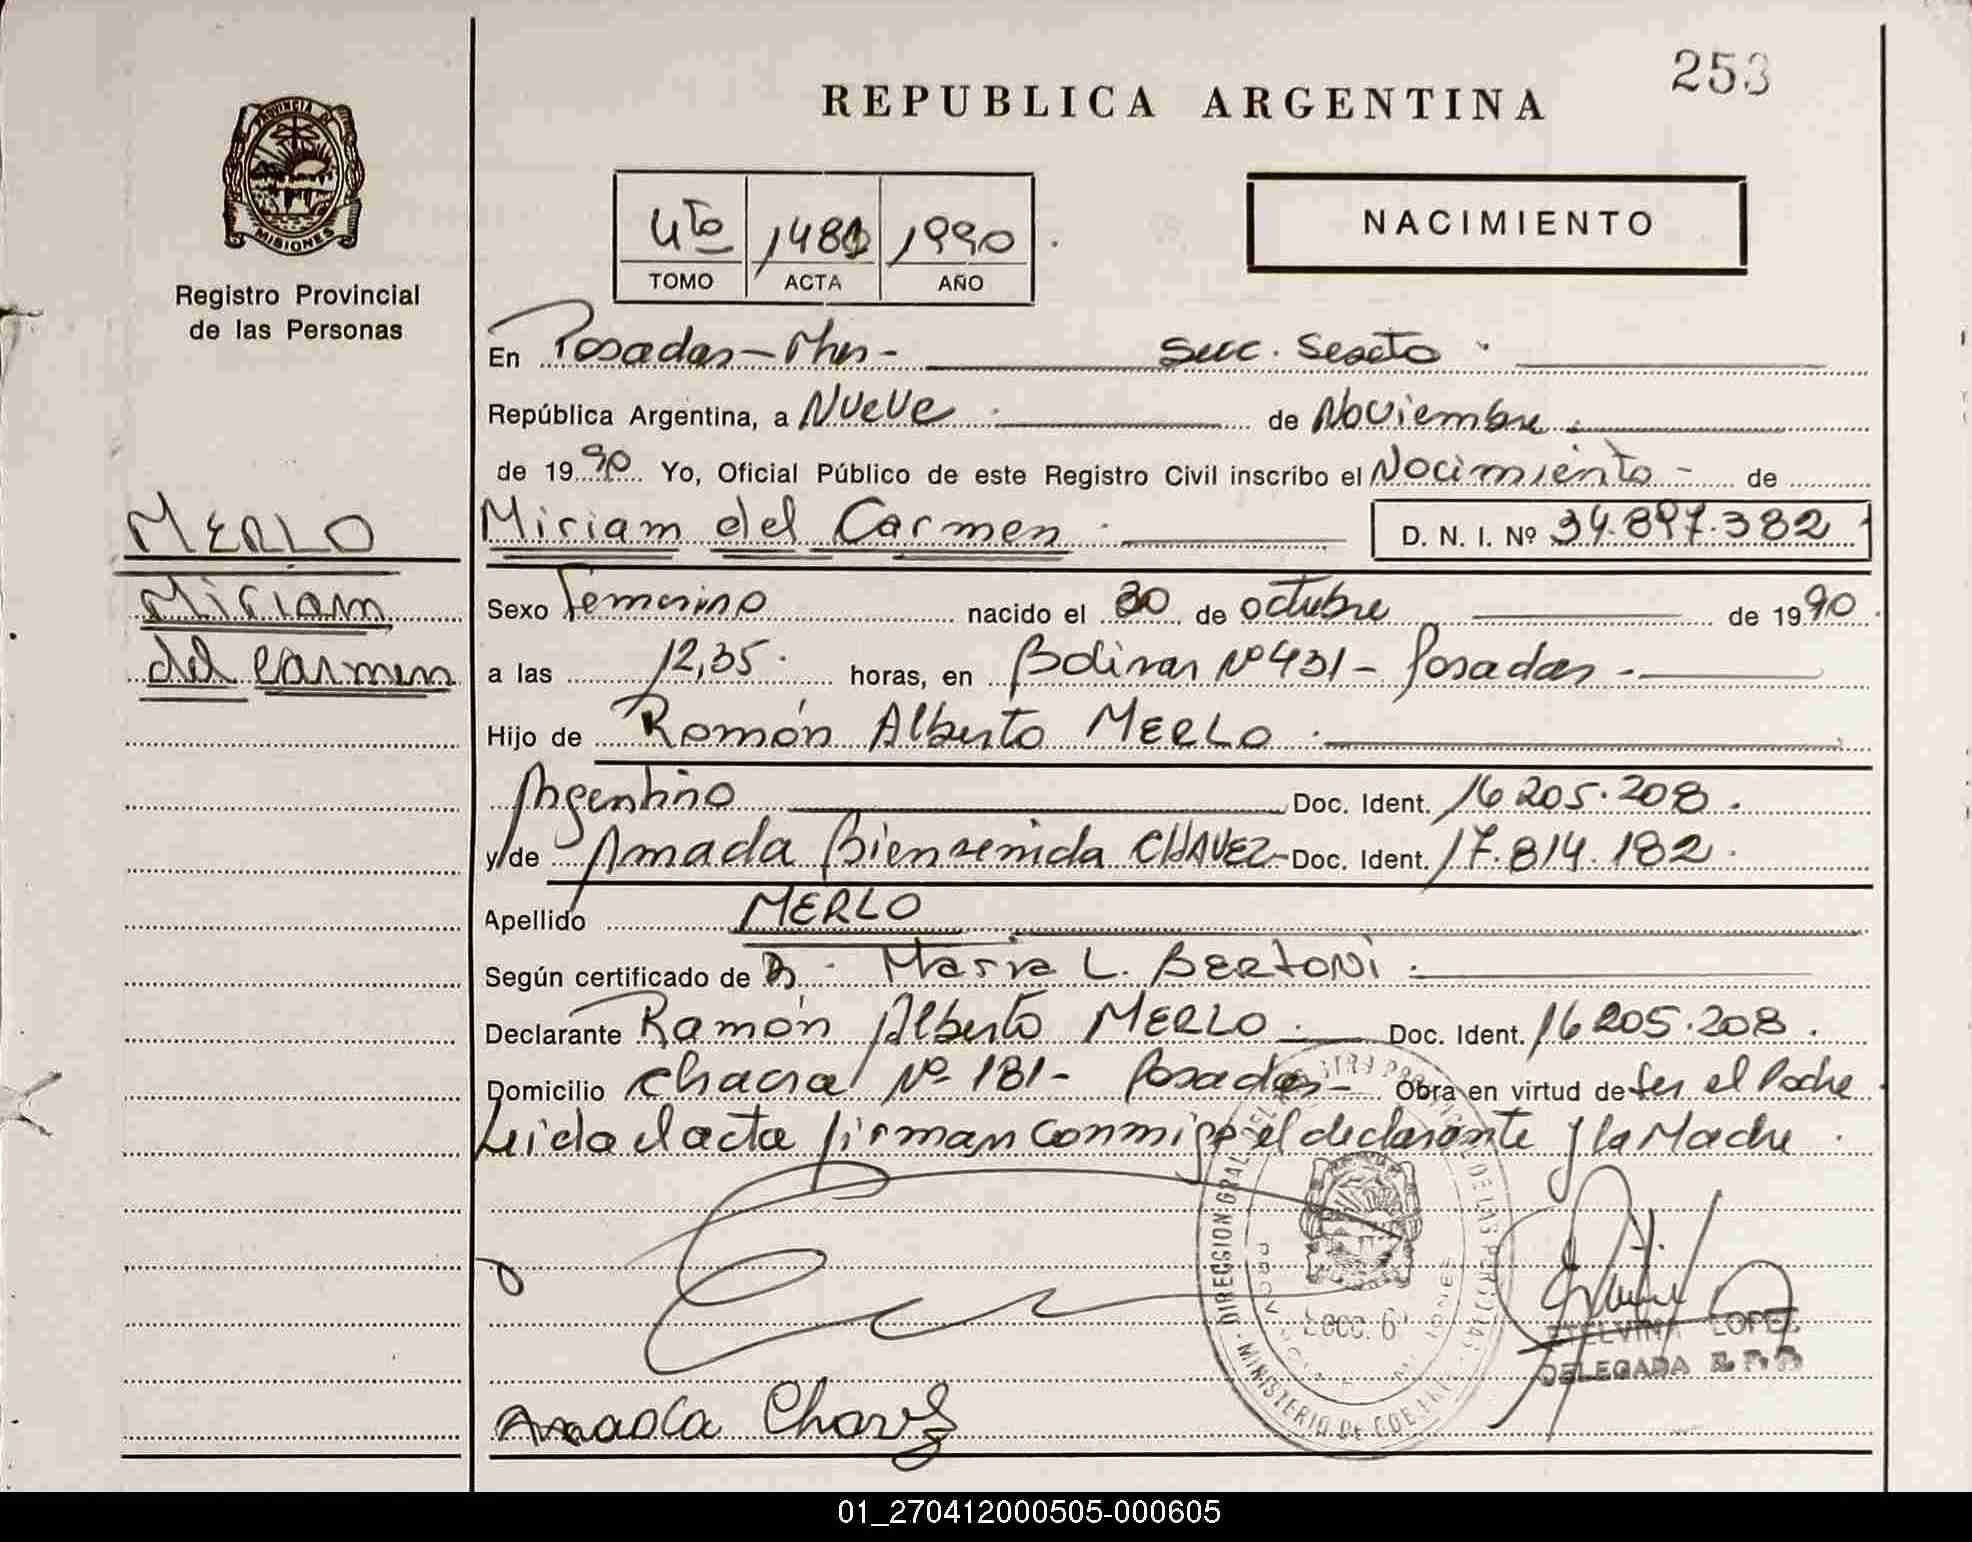 253
REPUBLICA ARGENTINA
PROVINCIA DE
MISIONES
Registro Provincial
de las Personas
4to 1990
TOMO ACTA AÑO
NACIMIENTO
En Posadas - Mnes - Secc. Sexto
República Argentina, a Nueve de Noviembre
de 1990 Yo, Oficial Público de este Registro Civil inscribo el Nacimiento - de
MERLO
Miriam
del Carmen
Miriam del Carmen D. N. I. Nº 34.897.382
Sexo Femenino nacido el 30 de octubre de 1990
a las 12,35 horas, en Bolivar Nº 431 - Posadas -
Hijo de Ramón Alberto MERLO
Argentino Doc. Ident. 16.205.208
y de Amada Bienvenida CHAVEZ - Doc. Ident. 17.814.182
Apellido MERLO
Según certificado de Maria L. BERTONI
Declarante Ramón Alberto MERLO Doc. Ident. 16.205.208
Domicilio Chacra Nº 181 - Posadas - Obra en virtud de Ser el Padre
Leida el acta firman conmigo el declarante y la Madre
DIRECCION GRAL. DEL REGISTRO PROVINCIAL DE LAS PERSONAS
MINISTERIO DE GOB
Secc. 6
ESTELVINA LOPEZ
DELEGADA R. P. P.
Amada Chavez
01_270412000505-000605